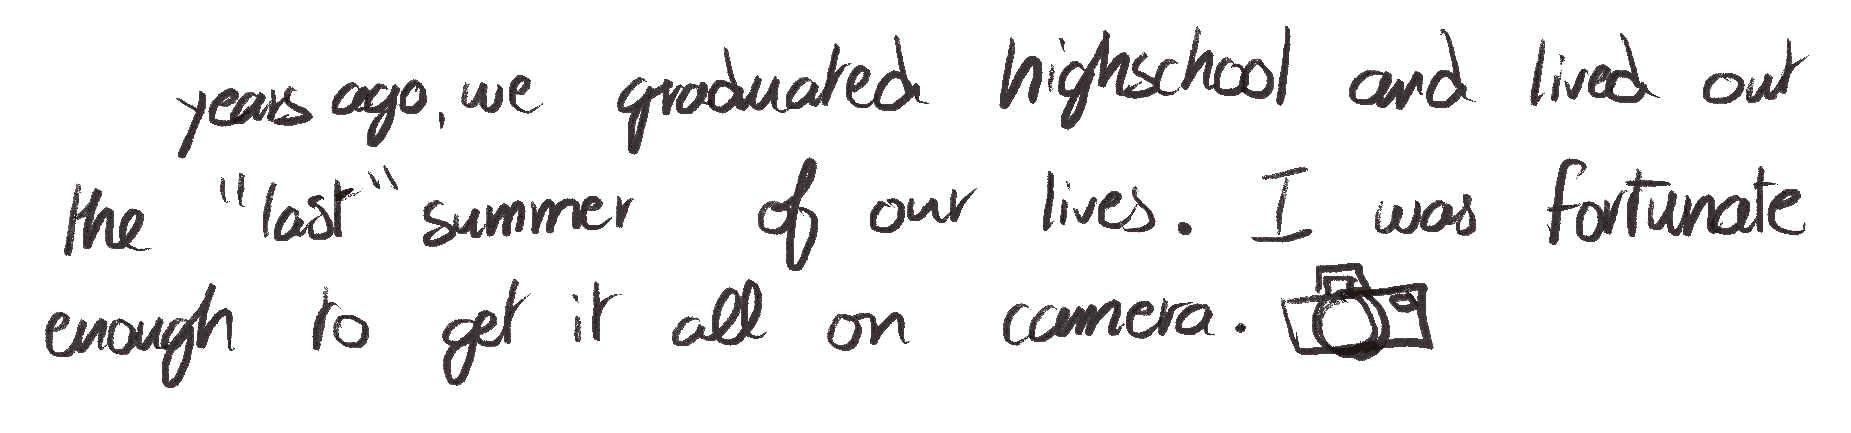 years ago, we graduated highschool and lived out
the "last" summer of our lives. I was fortunate
enough to get it all on camera.